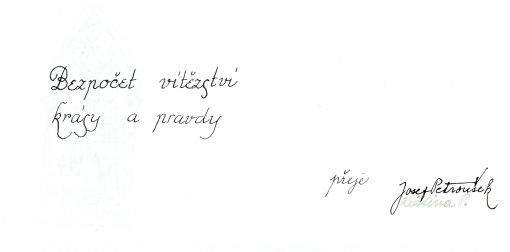 Bezpočet vítězství
krásy a pravdy
přeje Josef Petroušek